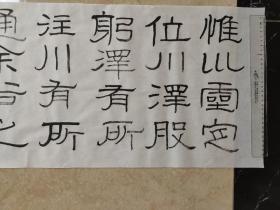 惟巛靈定
位川澤股
躬澤有所
注川有所
通余谷之